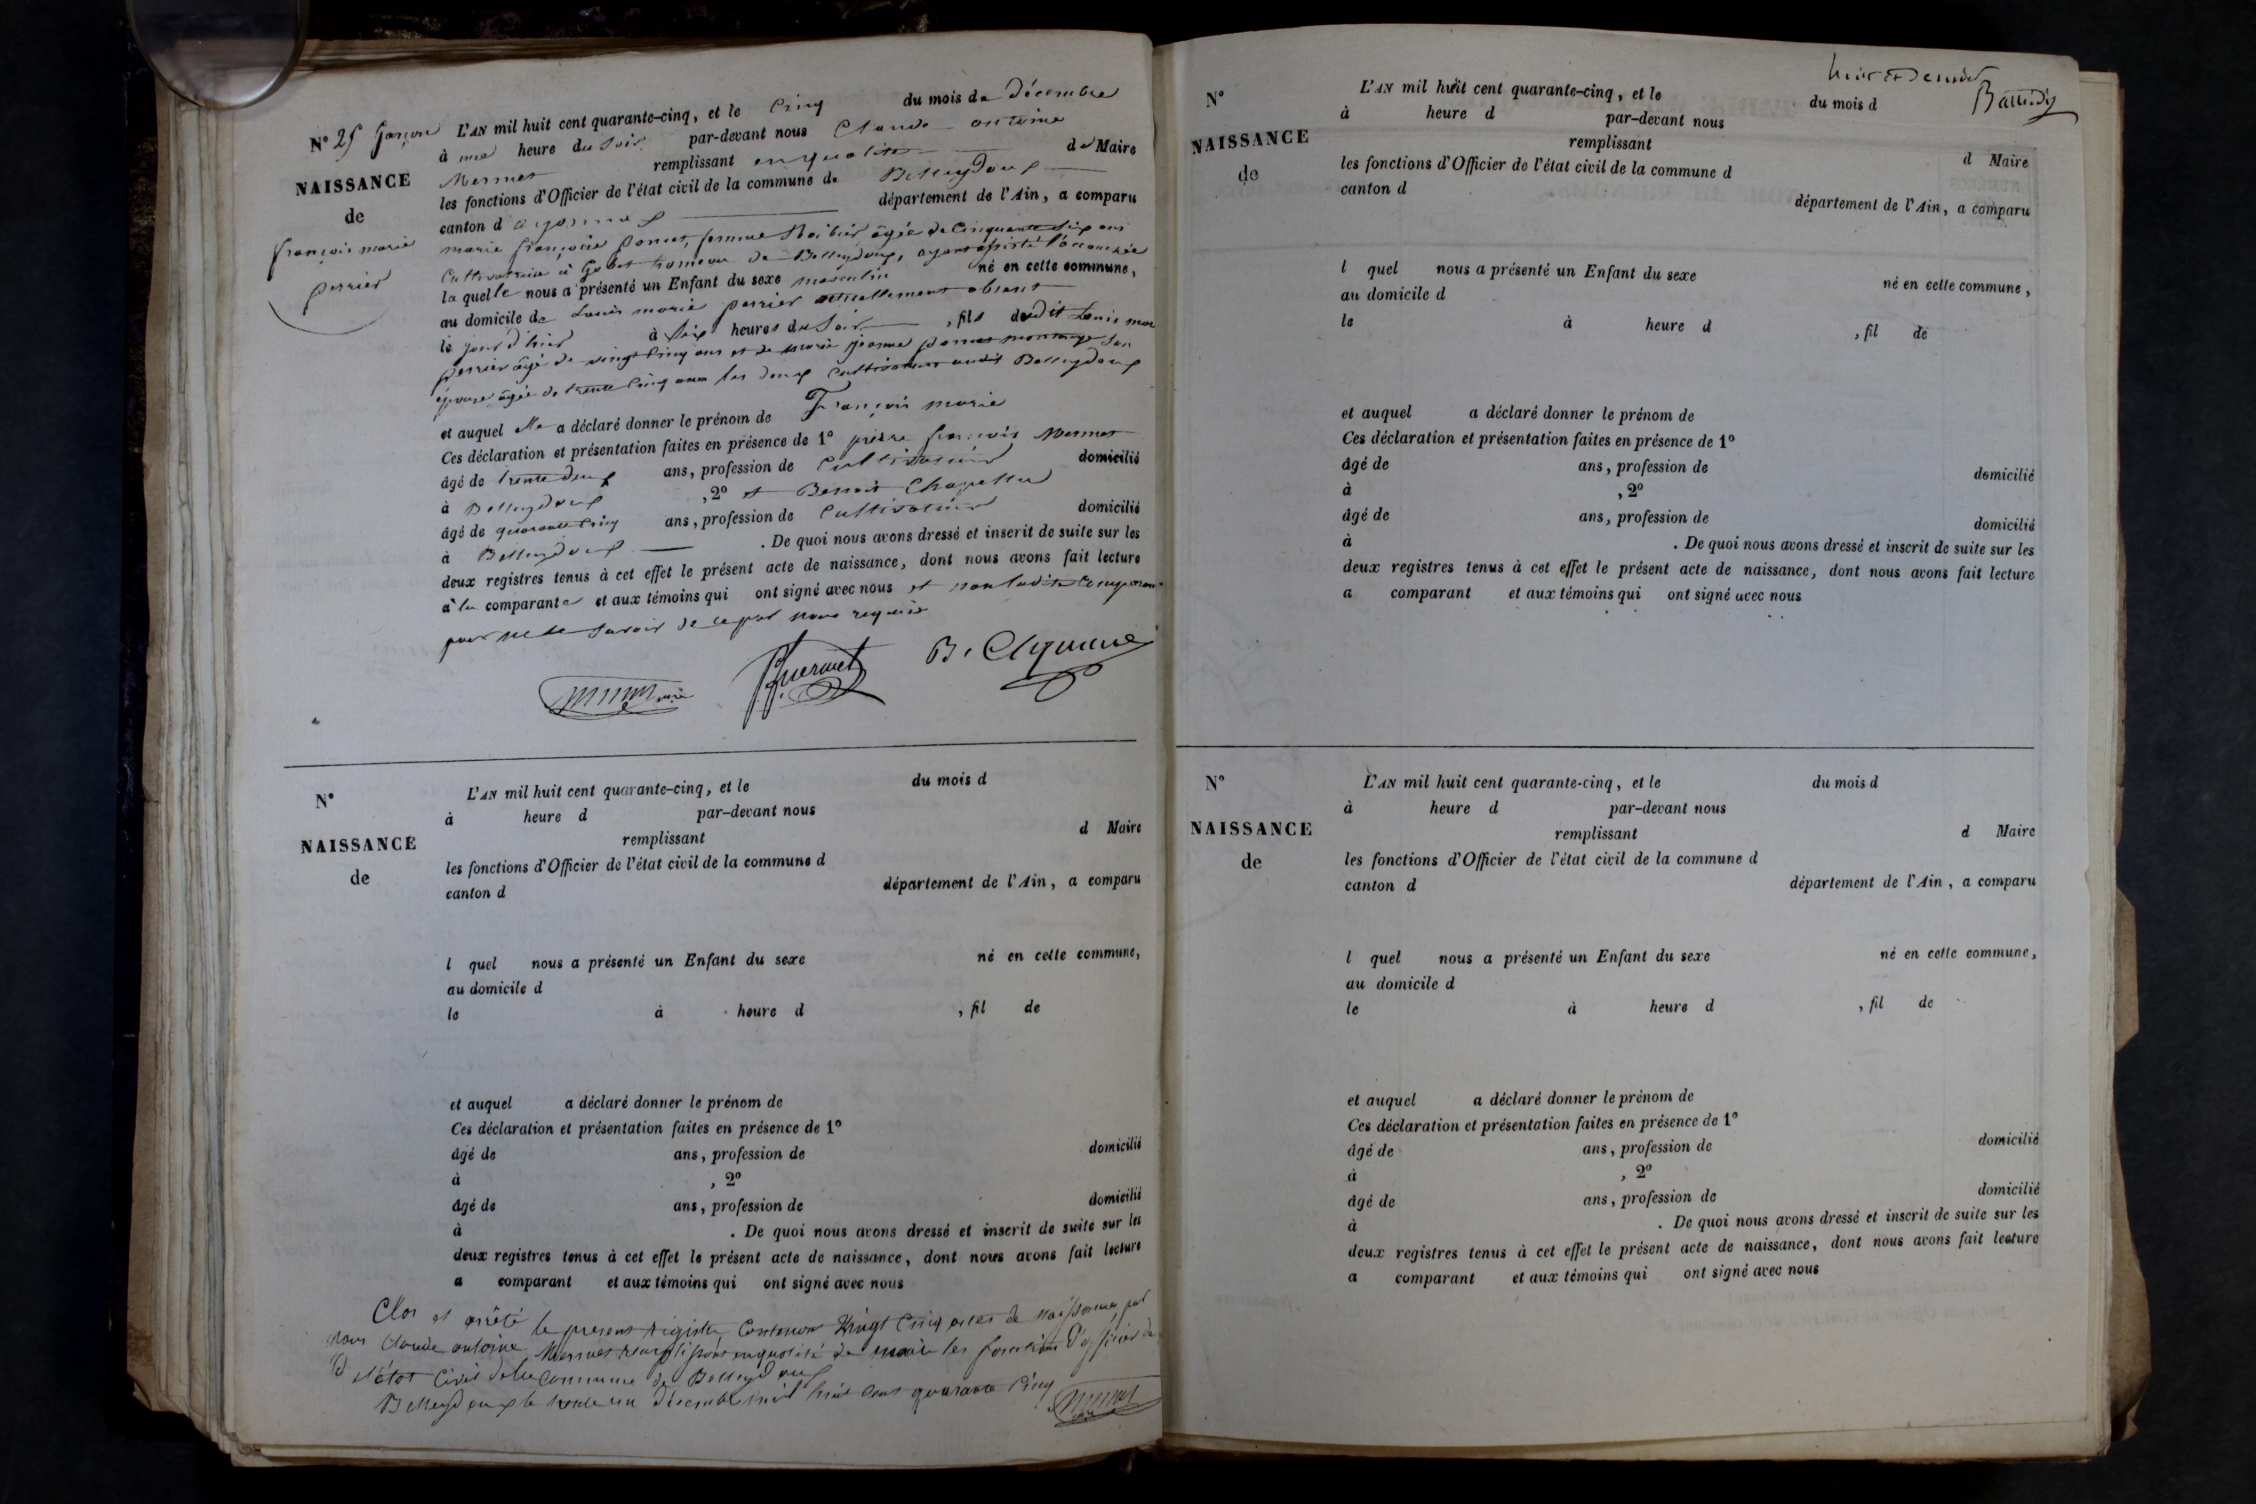 N° 25 garçon
NAISSANCE
de
françois marie
perrier
L'AN mil huit cent quarante-cinq, et le cinq du mois de Décembre
à une heure du soir par-devant nous Claude antoine
Mermet remplissant en qualité de Maire
les fonctions d'Officier de l'état civil de la commune de Belleydoux
canton d'oyonnax département de l'Ain, a comparu
marie françoise poncet, femme âgée de cinquante six ans
cultivatrice à Gobet hameau de Belleydoux, ayant assisté l'accouchée
laquelle nous a présenté un Enfant du sexe masculin né en cette commune,
au domicile de Louis marie perrier actuellement absent
le jour d'hier à six heures du soir, fils dudit Louis mar
perrier âgé de vingt cinq ans et de marie jeanne son
épouse âgée de trente cinq ans les deux cultivateurs audit Belleydoux
et auquel elle a déclaré donner le prénom de François marie
Ces déclaration et présentation faites en présence de 1° pierre françois Mermet
âgé de trente deux ans, profession de cultivateur domicilié
à Belleydoux, 2° et Benoit Chapelu
âgé de quarante cinq ans, profession de cultivateur domicilié
à Belleydoux. De quoi nous avons dressé et inscrit de suite sur les
deux registres tenus à cet effet le présent acte de naissance, dont nous avons fait lecture
à la comparante et aux témoins qui ont signé avec nous et non ladite comparante
pour ne le savoir de ce par nous requise
Mermet maire
N°
NAISSANCE
de
L'AN mil huit cent quarante-cinq, et le du mois d
à heure d par-devant nous
remplissant d Maire
les fonctions d'Officier de l'état civil de la commune d
canton d département de l'Ain, a comparu
l quel nous a présenté un Enfant du sexe né en cette commune,
au domicile d
le à heure d , fil de
et auquel a déclaré donner le prénom de
Ces déclaration et présentation faites en présence de 1°
âgé de ans, profession de domicilié
à , 2°
âgé de ans, profession de domicilié
à . De quoi nous avons dressé et inscrit de suite sur les
deux registres tenus à cet effet le présent acte de naissance, dont nous avons fait lecture
a comparant et aux témoins qui ont signé avec nous
Clos et arrêté le present registre contenant Vingt cinq actes de naissance, par
nous Claude antoine Mermet remplissant en qualité de maire les fonctions D'officier de
l'état Civil de la commune de Belleydoux
Belleydoux le trente un Décembre mil huit cent quarante cinq
Mermet
huit et dernier
N°
NAISSANCE
de
L'AN mil huit cent quarante-cinq, et le du mois d
à heure d par-devant nous
remplissant d Maire
les fonctions d'Officier de l'état civil de la commune d
canton d département de l'Ain, a comparu
l quel nous a présenté un Enfant du sexe né en cette commune,
au domicile d
le à heure d , fil de
et auquel a déclaré donner le prénom de
Ces déclaration et présentation faites en présence de 1°
âgé de ans, profession de domicilié
à , 2°
âgé de ans, profession de domicilié
à . De quoi nous avons dressé et inscrit de suite sur les
deux registres tenus à cet effet le présent acte de naissance, dont nous avons fait lecture
a comparant et aux témoins qui ont signé avec nous
N°
NAISSANCE
de
L'AN mil huit cent quarante-cinq, et le du mois d
à heure d par-devant nous
remplissant d Maire
les fonctions d'Officier de l'état civil de la commune d
canton d département de l'Ain, a comparu
l quel nous a présenté un Enfant du sexe né en cette commune,
au domicile d
le à heure d , fil de
et auquel a déclaré donner le prénom de
Ces déclaration et présentation faites en présence de 1°
âgé de ans, profession de domicilié
à , 2°
âgé de ans, profession de domicilié
à . De quoi nous avons dressé et inscrit de suite sur les
deux registres tenus à cet effet le présent acte de naissance, dont nous avons fait lecture
a comparant et aux témoins qui ont signé avec nous